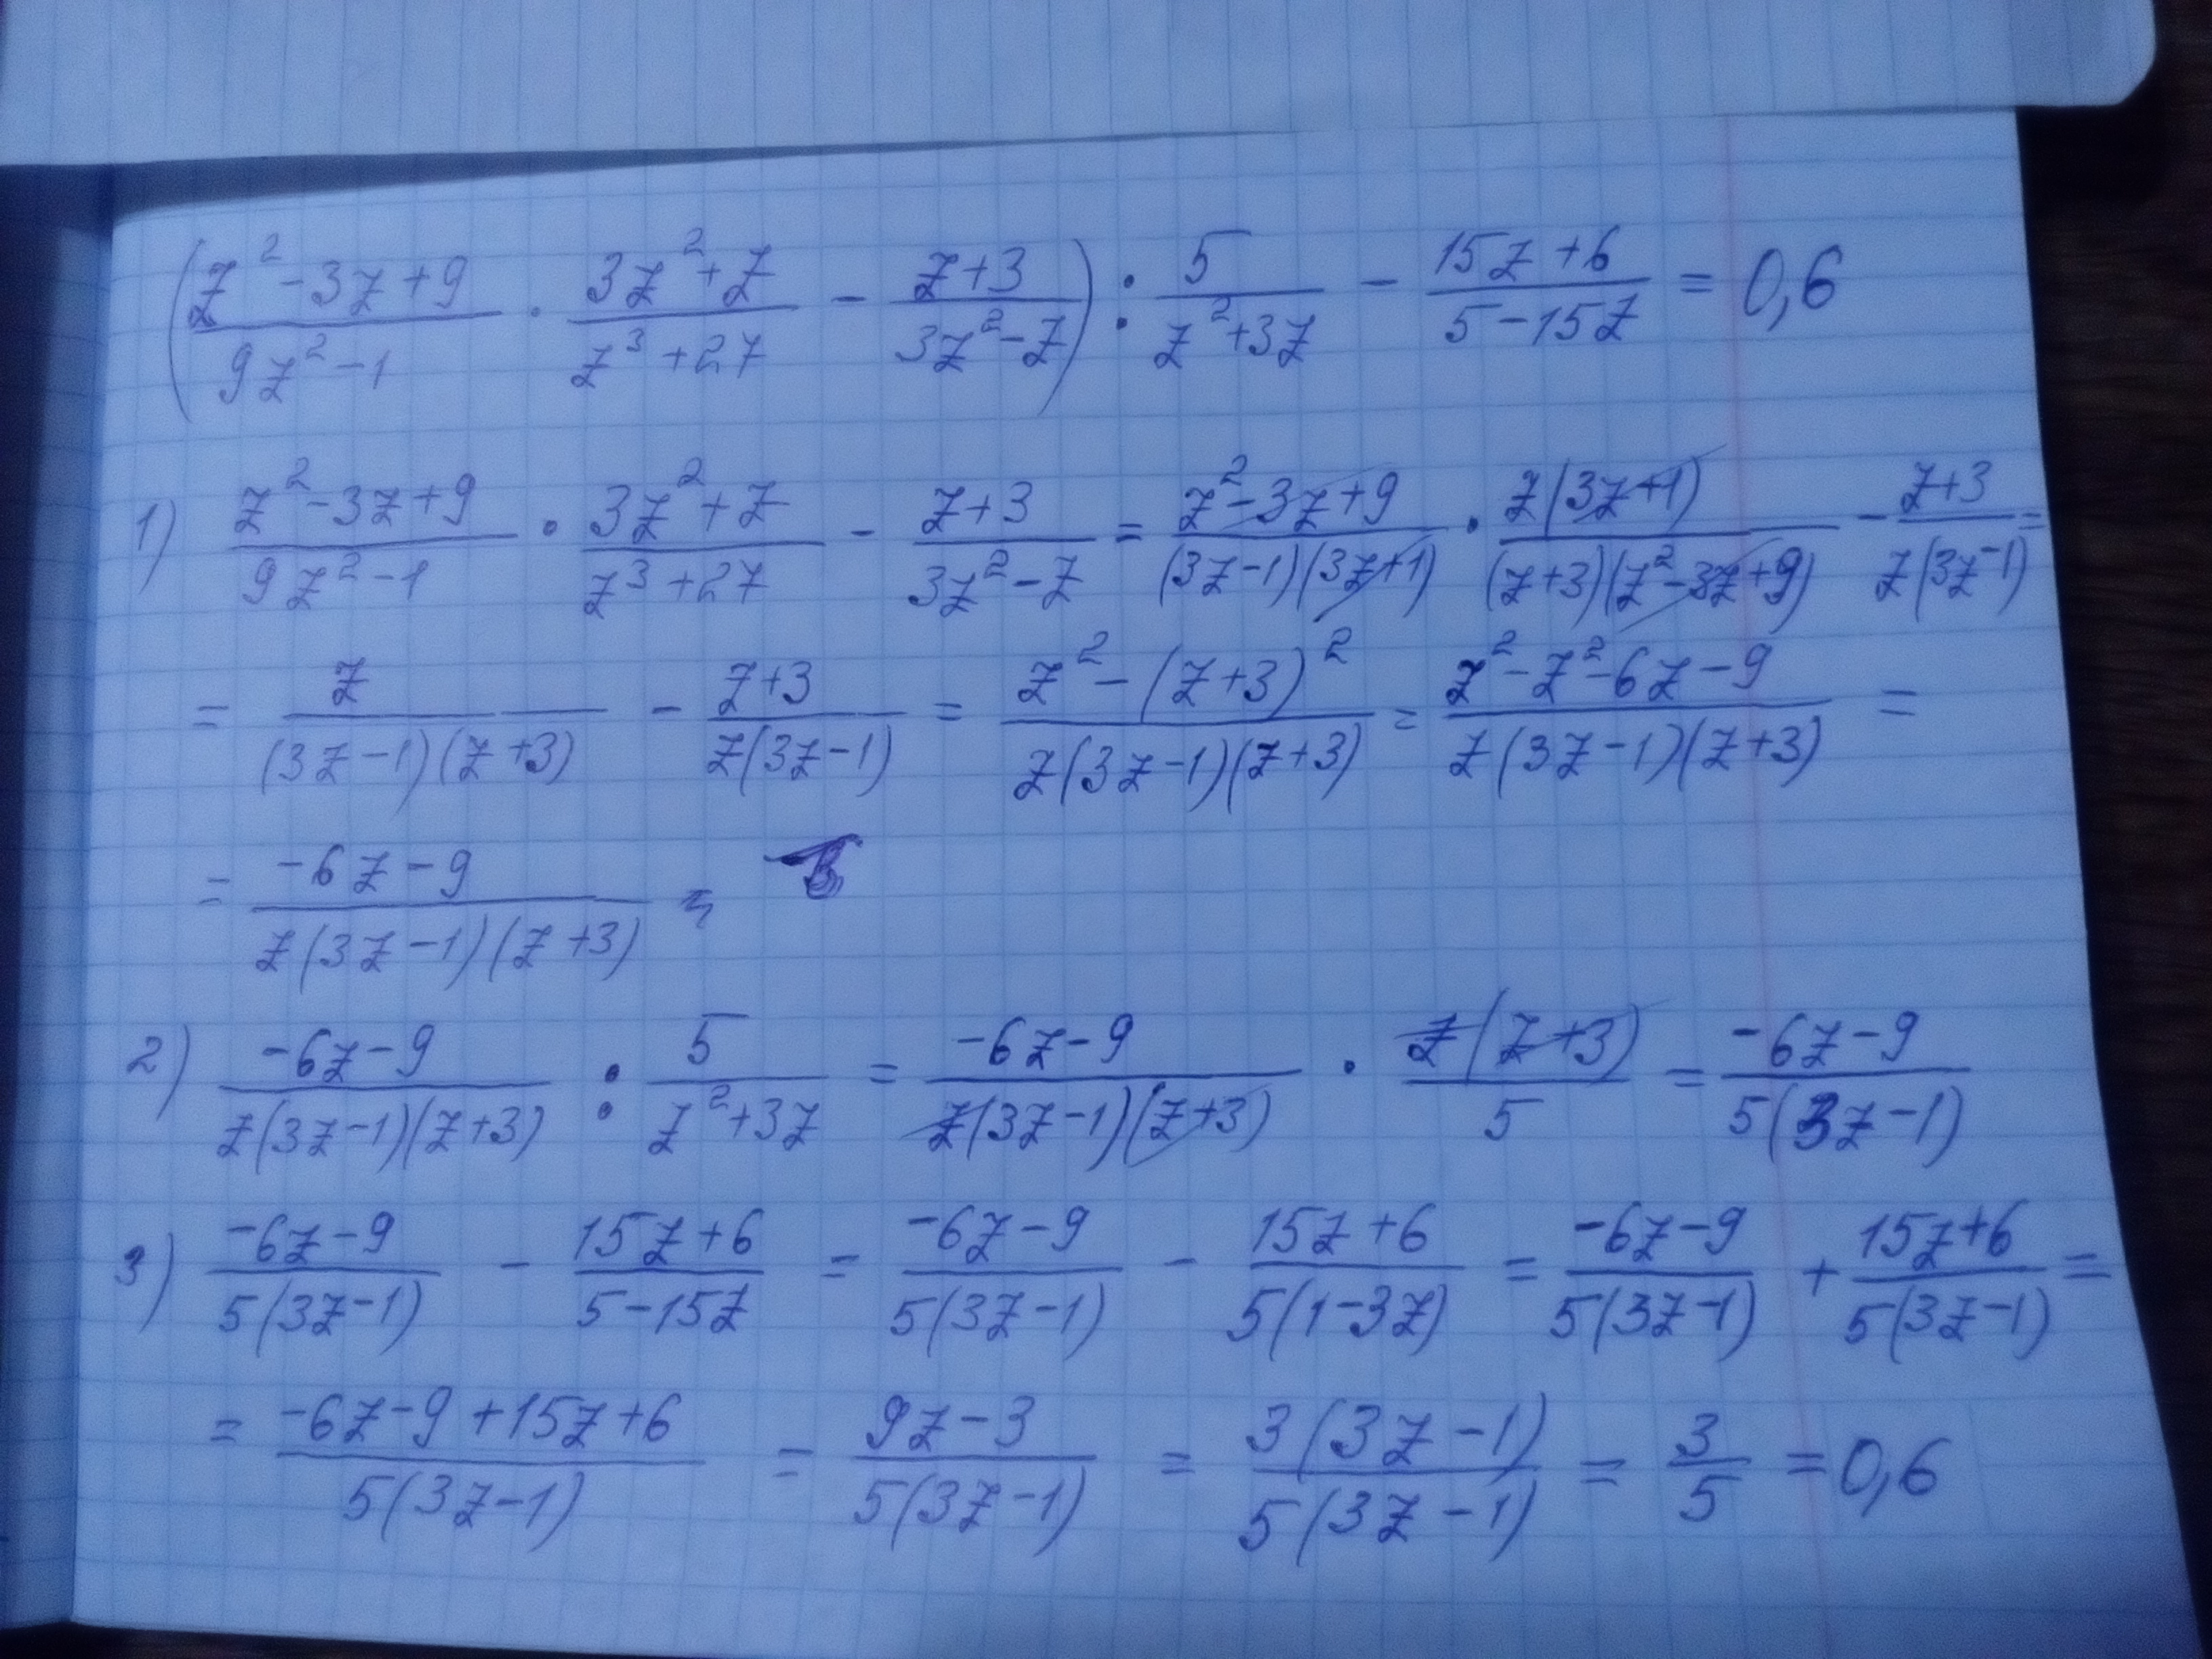 (z²-3z+9)/(9z²-1) · (3z²+z)/(z³+27) - (z+3)/(3z²-z)) : 5/(z²+3z) - (15z+6)/(5-15z) = 0,6
1) (z²-3z+9)/(9z²-1) · (3z²+z)/(z³+27) - (z+3)/(3z²-z) = (z²-3z+9)/((3z-1)(3z+1)) · z(3z+1)/((z+3)(z²-3z+9)) - (z+3)/(z(3z-1)) =
= z/((3z-1)(z+3)) - (z+3)/(z(3z-1)) = (z²-(z+3)²)/(z(3z-1)(z+3)) = (z²-z²-6z-9)/(z(3z-1)(z+3)) =
= (-6z-9)/(z(3z-1)(z+3)) =
2) (-6z-9)/(z(3z-1)(z+3)) : 5/(z²+3z) = (-6z-9)/(z(3z-1)(z+3)) · z(z+3)/5 = (-6z-9)/(5(3z-1))
3) (-6z-9)/(5(3z-1)) - (15z+6)/(5-15z) = (-6z-9)/(5(3z-1)) - (15z+6)/(5(1-3z)) = (-6z-9)/(5(3z-1)) + (15z+6)/(5(3z-1)) =
= (-6z-9+15z+6)/(5(3z-1)) = (9z-3)/(5(3z-1)) = 3(3z-1)/(5(3z-1)) = 3/5 = 0,6